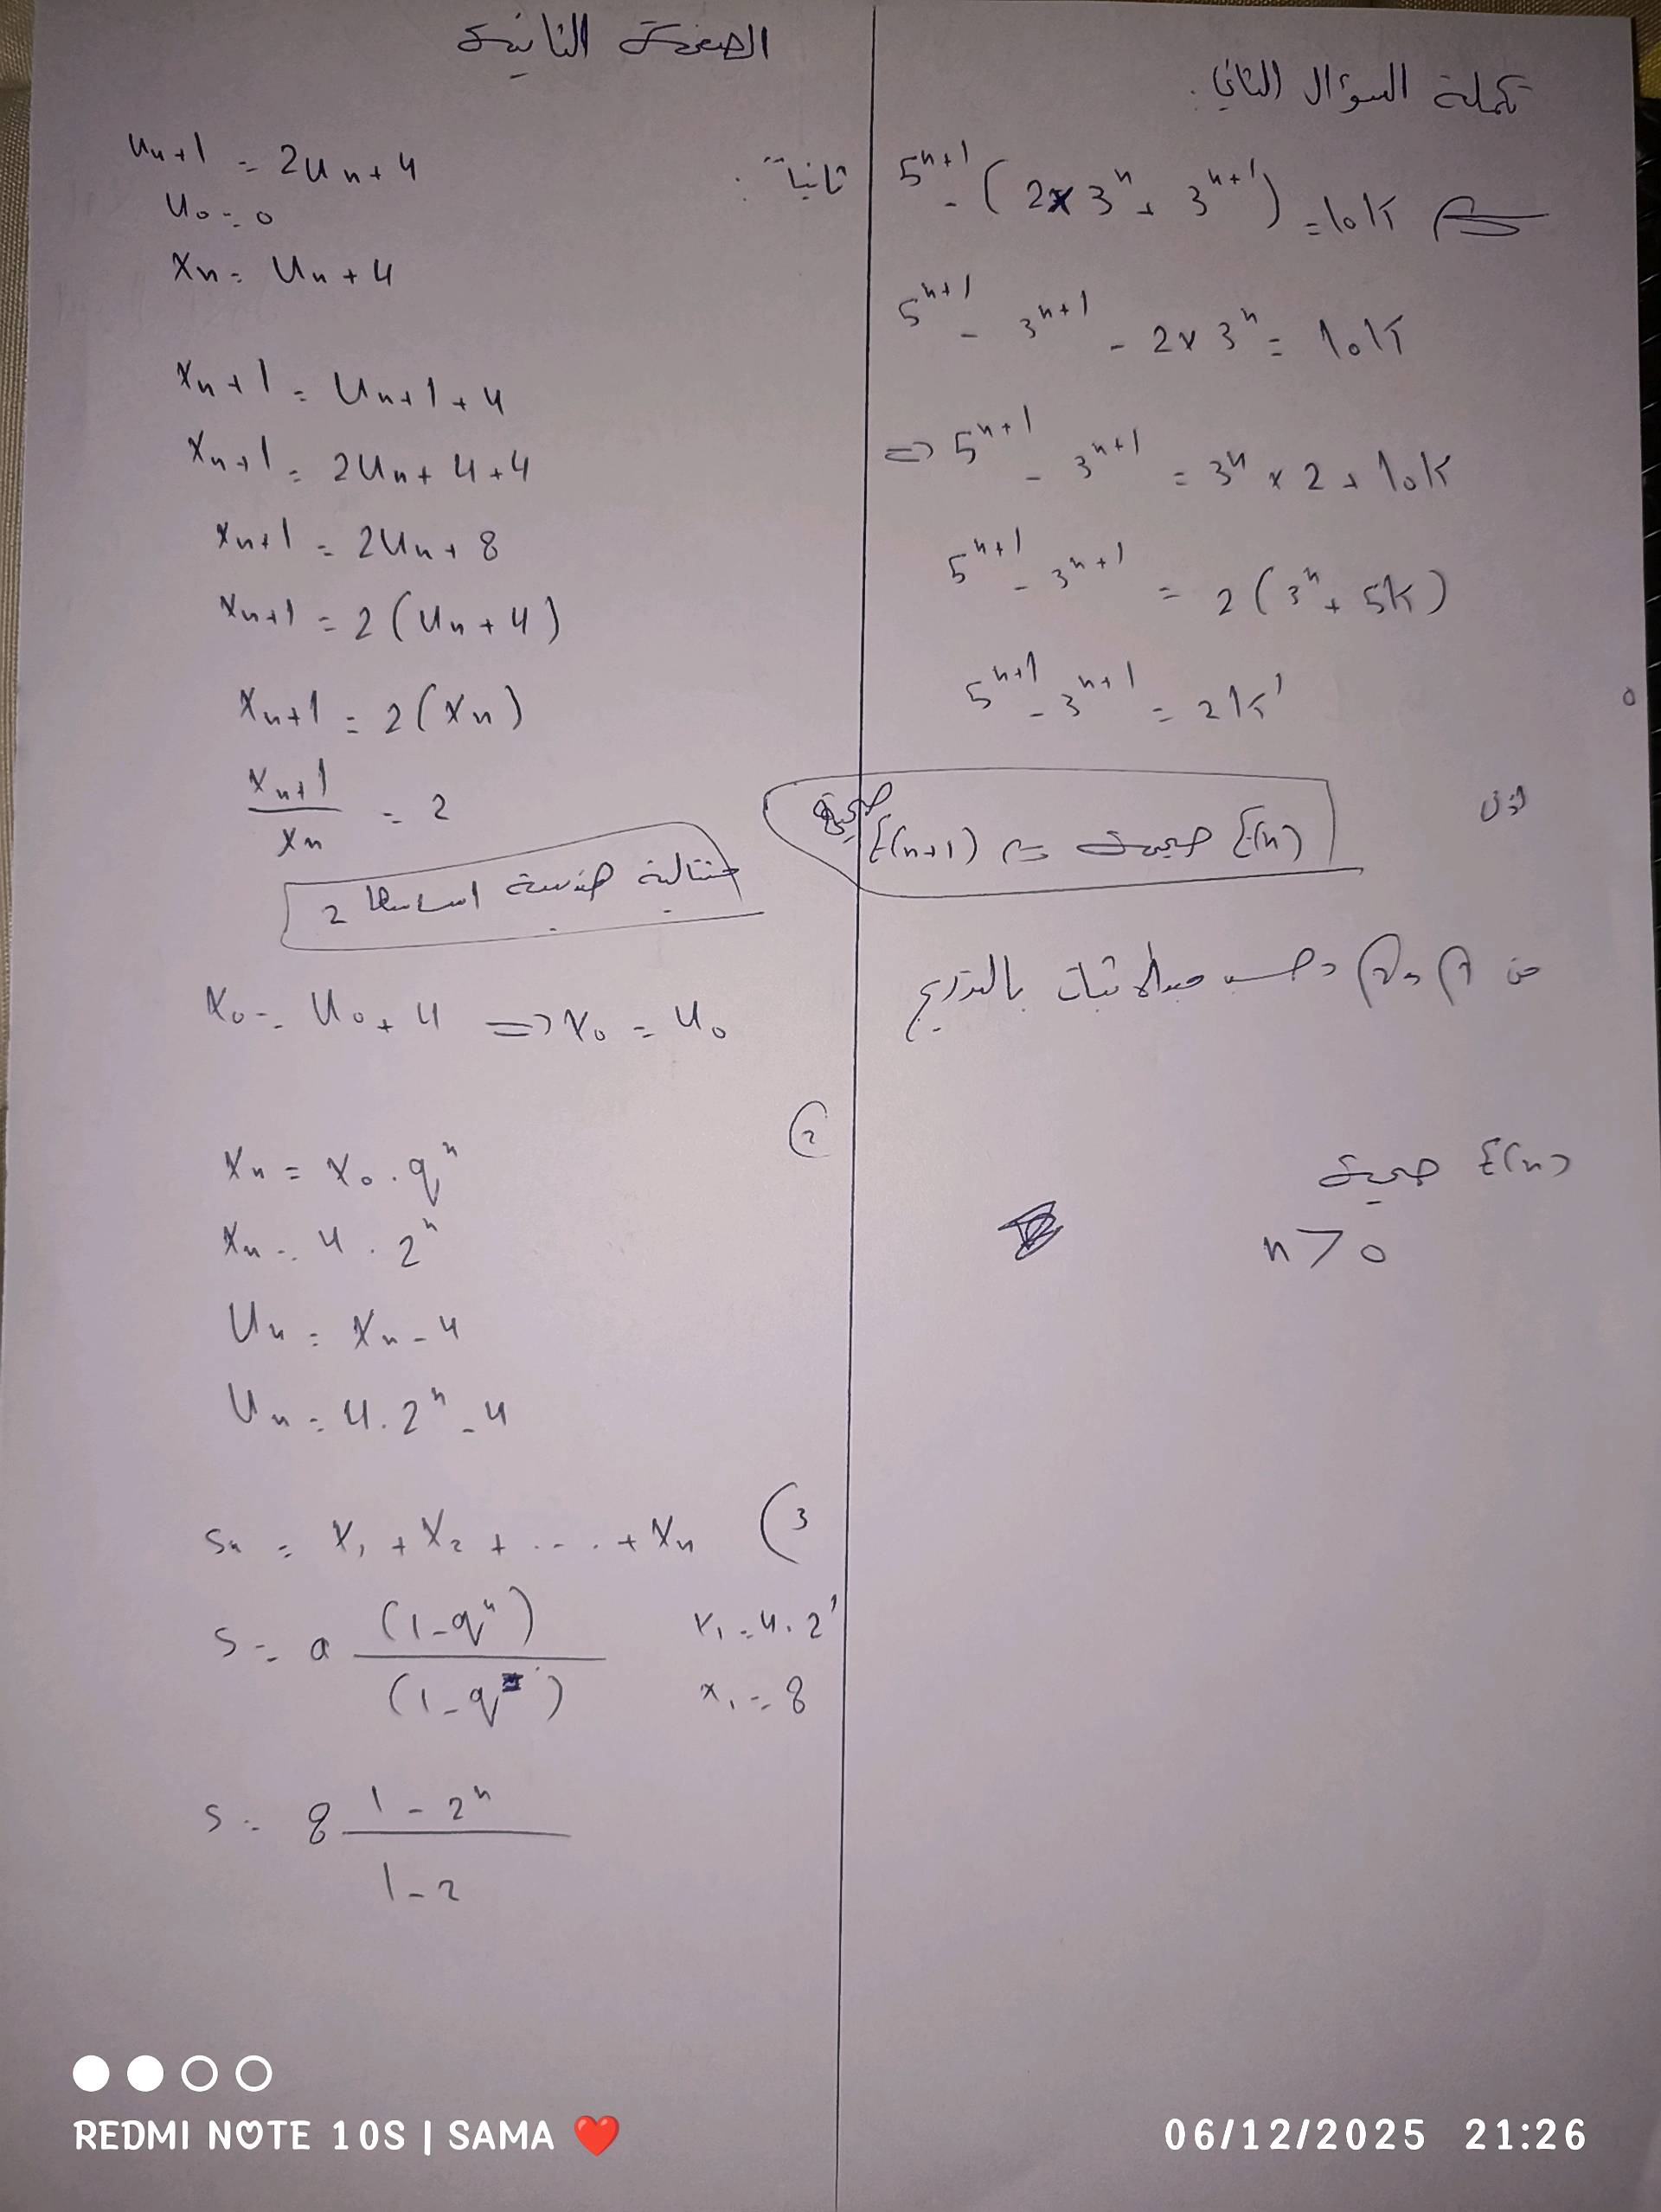 تكملة السؤال الثاني.
5^{n+1} - (2×3^n + 3^{n+1}) = 10K
5^{n+1} - 3^{n+1} - 2×3^n = 10K
=> 5^{n+1} - 3^{n+1} = 3^n × 2 + 10K
5^{n+1} - 3^{n+1} = 2(3^n + 5K)
5^{n+1} - 3^{n+1} = 2K'
اذن
E(n) صحيحة <= E(n+1) صحيحة
من 1) و 2) وحسب مبدأ الاثبات بالتدريج
E(n) صحيحة
n > 0
الصفحة الثانية
ثانياً:
u_{n+1} = 2u_n + 4
u_0 = 0
x_n = u_n + 4
x_{n+1} = u_{n+1} + 4
x_{n+1} = 2u_n + 4 + 4
x_{n+1} = 2u_n + 8
x_{n+1} = 2(u_n + 4)
x_{n+1} = 2(x_n)
x_{n+1} / x_n = 2
متتالية هندسية اساسها 2
x_0 = u_0 + 4 => x_0 = 4
2)
x_n = x_0 . q^n
x_n = 4 . 2^n
u_n = x_n - 4
u_n = 4 . 2^n - 4
3) s_n = x_1 + x_2 + .... + x_n
s = a (1 - q^n) / (1 - q)
x_1 = 4 . 2^1
x_1 = 8
s = 8 (1 - 2^n) / (1 - 2)
REDMI NOTE 10S | SAMA ❤️
06/12/2025 21:26